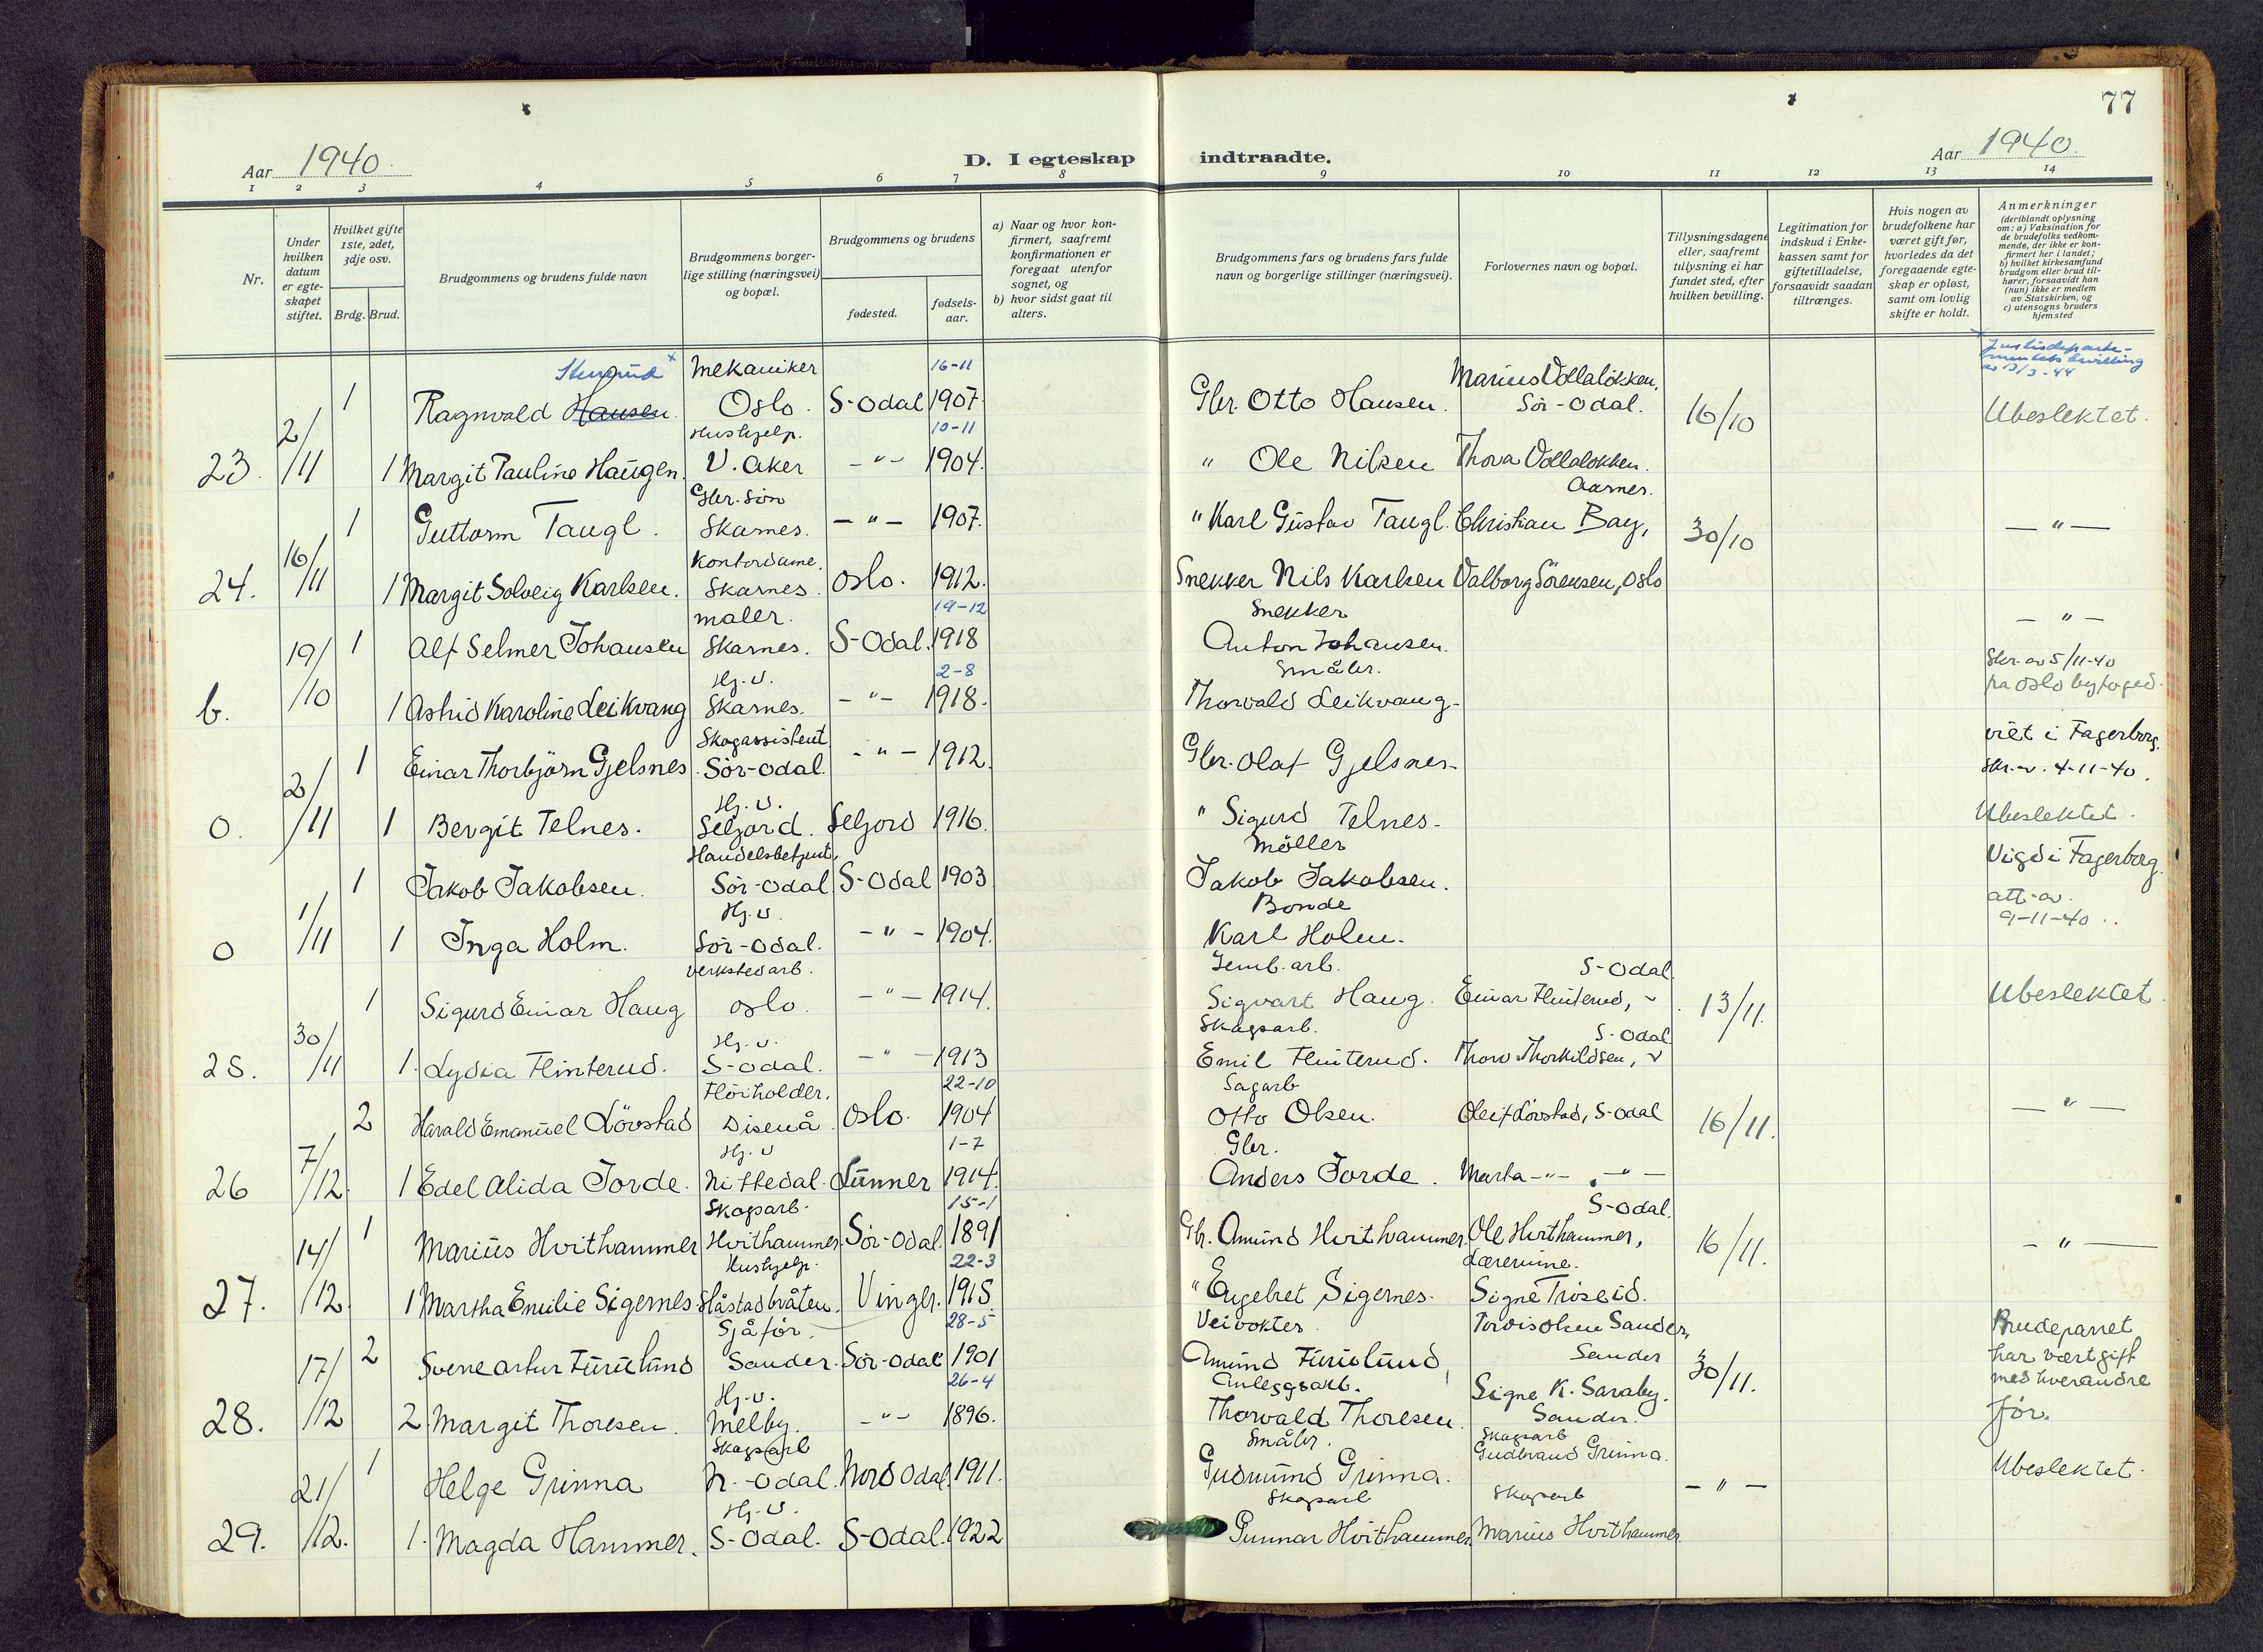 77
Aar 1940.
D. I egteskap indtraadte.
Aar 1940.
1 2 3 4 5 6 7 8 9 10 11 12 13 14
Nr.
Under hvilken datum er egte-skapet stiftet.
Hvilket gifte 1ste, 2det, 3dje osv.
Brdg. Brud.
Brudgommens og brudens fulde navn
Brudgommens borger-lige stilling (næringsvei) og bopæl.
Brudgommens og brudens
fødested.
fødsels-aar.
a) Naar og hvor kon-firmert, saafremt konfirmationen er foregaat utenfor sognet, og
b) hvor sidst gaat til alters.
Brudgommens fars og brudens fars fulde navn og borgerlige stillinger (næringsvei).
Forlovernes navn og bopæl.
Tillysningsdagene eller, saafremt tillysning ei har fundet sted, efter hvilken bevilling.
Legitimation for indskud i Enke-kassen samt for giftetilladelse, forsaavidt saadan tiltrænges.
Hvis nogen av brudefolkene har været gift før, hvorledes da det foregaaende egte-skap er opløst, samt om lovlig skifte er holdt.
Anmerkninger
(deriblandt oplysning om: a) Vaksination for de brudefolks vedkom-mende, der ikke er kon-firmert her i landet;
b) hvilket kirkesamfund brudgom eller brud til-hører, forsaavidt han (hun) ikke er medlem av Statskirken, og
c) utensogns bruders hjemsted
Mekaniker 16-11 Marius Vollaløkken, Justisdeparte-mentets bevilling av 13/3-44
1 Ragnvald Hausen. Oslo. S-Odal 1907. Gbr. Otto Hansen. Sör-Odal. 16/10 Ubeslektet.
Hushjelp. 10-11
23. 2/11 1 Margit Pauline Haugen. V. Aker -"- 1904. " Ole Nilsen Thora Vollaløkken. Aarnes.
Gbr. sön
1 Guttorm Taugl. Skarnes. -"- 1907. " Karl Gustav Taugl. Christian Bay, 30/10 -"-
Kontordame.
24. 16/11 1 Margit Solveig Karlsen. Skarnes. Oslo. 1912. Snekker Nils Karlsen Valborg Sörensen, Oslo
maler. 19-12 Snekker
1 Alf Selmer Johansen Skarnes. S-Odal. 1918 Anton Johansen. -"-
Hj.v. 2-8 Småbr. Skr. av 5/11-40
b. 19/10 1 Astrid Karoline Leikvang Skarnes. -"- 1918. Thorvald Leikvang- fra Oslo byfoged.
Skogassistent
1 Einar Thorbjörn Gjelsnes. Sör-Odal. -"- 1912. Gbr. Olaf Gjelsnes- viet i Fagerborg. skr. av. 4-11-40.
Hj.v.
0. 2/11 1 Bergit Telnes. Seljord. Seljord 1916. " Sigurd Telnes- Ubeslektet.
Handelsbetjent, Möller
1 Jakob Jakobsen. Sör-Odal S-Odal 1903 Jakob Jakobsen. Vigd i Fagerborg.
Hj.v. Bonde att. av. 9-11-40.
0 1/11 1 Inga Holm. Sör-Odal. -"- 1904. Karl Holm.
Verkstedarb. Jernb. arb. S-Odal
1 Sigurd Einar Haug Oslo. -"- 1914. Sigvart Haug. Einar Flinterud, 13/11. Ubeslektet.
Hj.v. Skogsarb. S-Odal
25. 30/11 1. Lydia Flinterud. S-Odal. -"- 1913 Emil Flinterud. Thorv. Thorkildsen,
22-10 Sagarb
2 Harald Emanuel Lövstad Disenå. Oslo. 1904 Otto Olsen. Oleif Lövstad, S-Odal 16/11. -"-
Hj.v 1-7 Gbr.
26 7/12. 1 Edel Alida Jorde. Nittedal. Lunner 1914. Anders Jorde. Marta -"- -"-
Skogsarb. 15-1 S-Odal.
1 Marius Hvithammer Hvithammer. Sör-Odal. 1891 Gbr. Amund Hvithammer. Ole Hvithammer, 16/11. -"-
Hushjelp. 22-3 Lærerinne.
27. 14/12. 1 Martha Emilie Sigernes. Håstadbråten. Vinger. 1915. " Engebret Sigernes. Signe Troseid.
Sjåför. 28-5 Veivokter Tordis Olsen Sander, Brudeparret
2 Sverre Artur Furulund Sander. Sör-Odal 1901 Amund Furulund, Sander 30/11. har vært gift
Hj.v. 26-4 Anleggsarb. Signe K. Saraby. med hverandre
28. 17/12 2. Margit Thoresen. Melby. -"- 1896. Thorvald Thoresen. Sander. för.
Skogsarb Småbr. Skogsarb
1 Helge Grinna N.-Odal. Nord Odal. 1911. Gudmund Grinna. Gudbrand Grinna. -"- Ubeslektet.
Hj.v. Skogsarb Skogsarb
29. 21/12. 1. Magda Hammer. S-Odal. S-Odal. 1922 Gunnar Hvithammer. Marius Hvithammer.